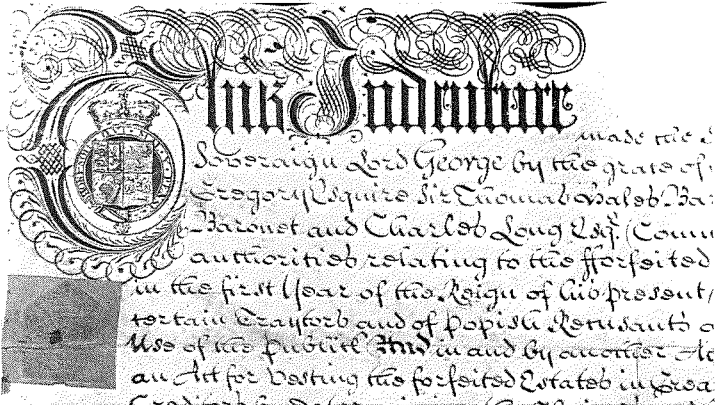 This Indenture
made the
Sovereign Lord George by the grace of
Gregory Esquire Sir Thomas Hales Bar
Baronet and Charles Long Esqr. (Comm
authorities relating to the fforfeited
in the first Year of the Reign of his present
certain Traytors and of Popish Recusants
Use of the Publick And in and by another Act
an Act for vesting the forfeited Estates in Grea